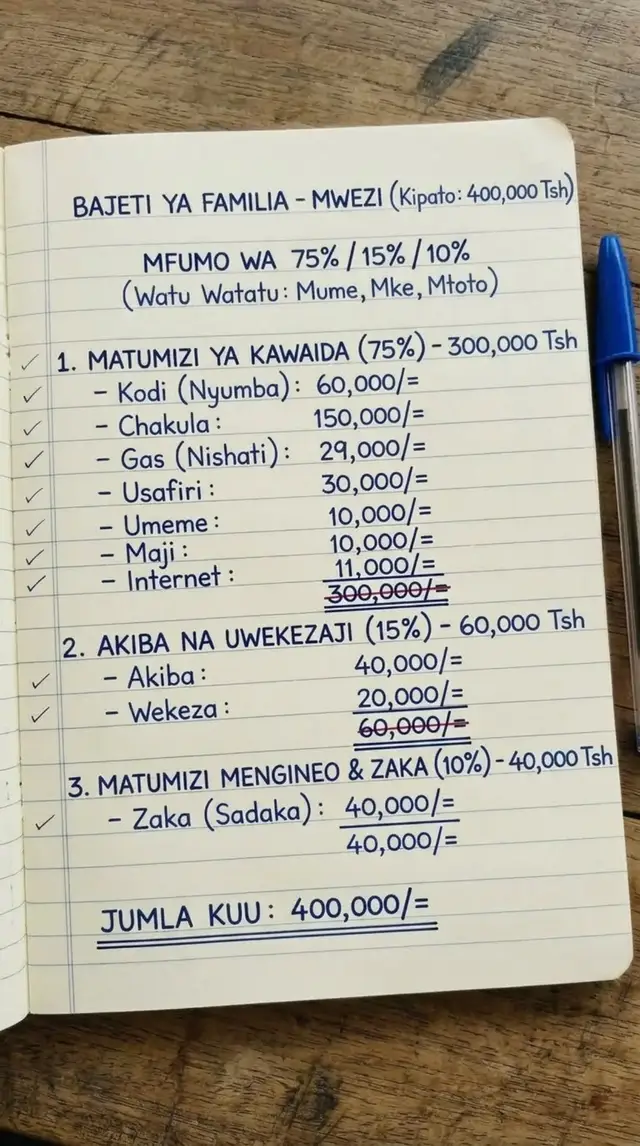 BAJETI YA FAMILIA - MWEZI (Kipato: 400,000 Tsh)
MFUMO WA 75% / 15% / 10%
(Watu Watatu: Mume, Mke, Mtoto)
1. MATUMIZI YA KAWAIDA (75%) - 300,000 Tsh
- Kodi (Nyumba): 60,000/=
- Chakula: 150,000/=
- Gas (Nishati): 29,000/=
- Usafiri: 30,000/=
- Umeme: 10,000/=
- Maji: 10,000/=
- Internet: 11,000/=
300,000/=
2. AKIBA NA UWEKEZAJI (15%) - 60,000 Tsh
- Akiba: 40,000/=
- Wekeza: 20,000/=
60,000/=
3. MATUMIZI MENGINEO & ZAKA (10%) - 40,000 Tsh
- Zaka (Sadaka): 40,000/=
40,000/=
JUMLA KUU: 400,000/=